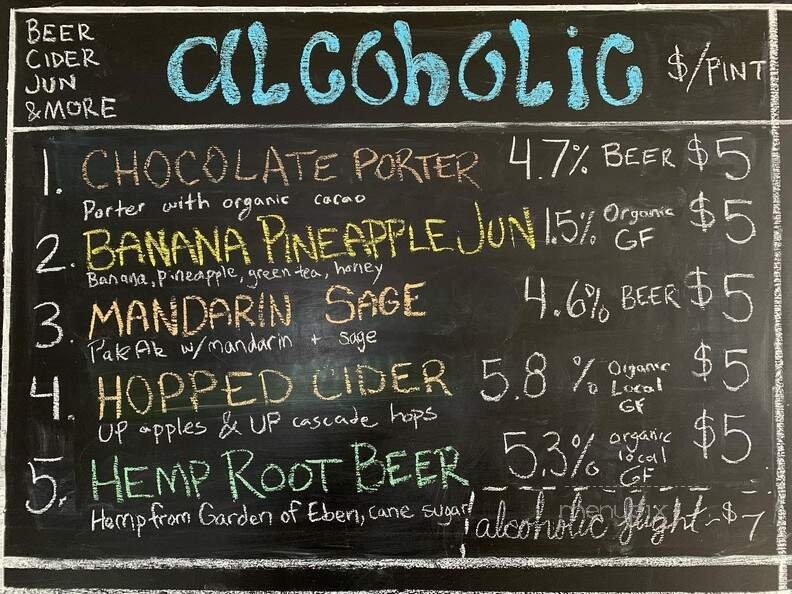 BEER
CIDER
JUN
&MORE
alcoholic
$/PINT
1. CHOCOLATE PORTER 4.7% BEER $5
Porter with organic cacao
2. BANANA PINEAPPLE JUN 1.5% Organic GF $5
Banana, pineapple, green tea, honey
3. MANDARIN SAGE 4.6% BEER $5
Pale Ale w/ mandarin + sage
4. HOPPED CIDER 5.8 % Organic Local GF $5
UP apples & UP cascade hops
5. HEMP ROOT BEER 5.3% organic local GF $5
Hemp from Garden of Eben, cane sugar
alcoholic flight ~ $7
menupix